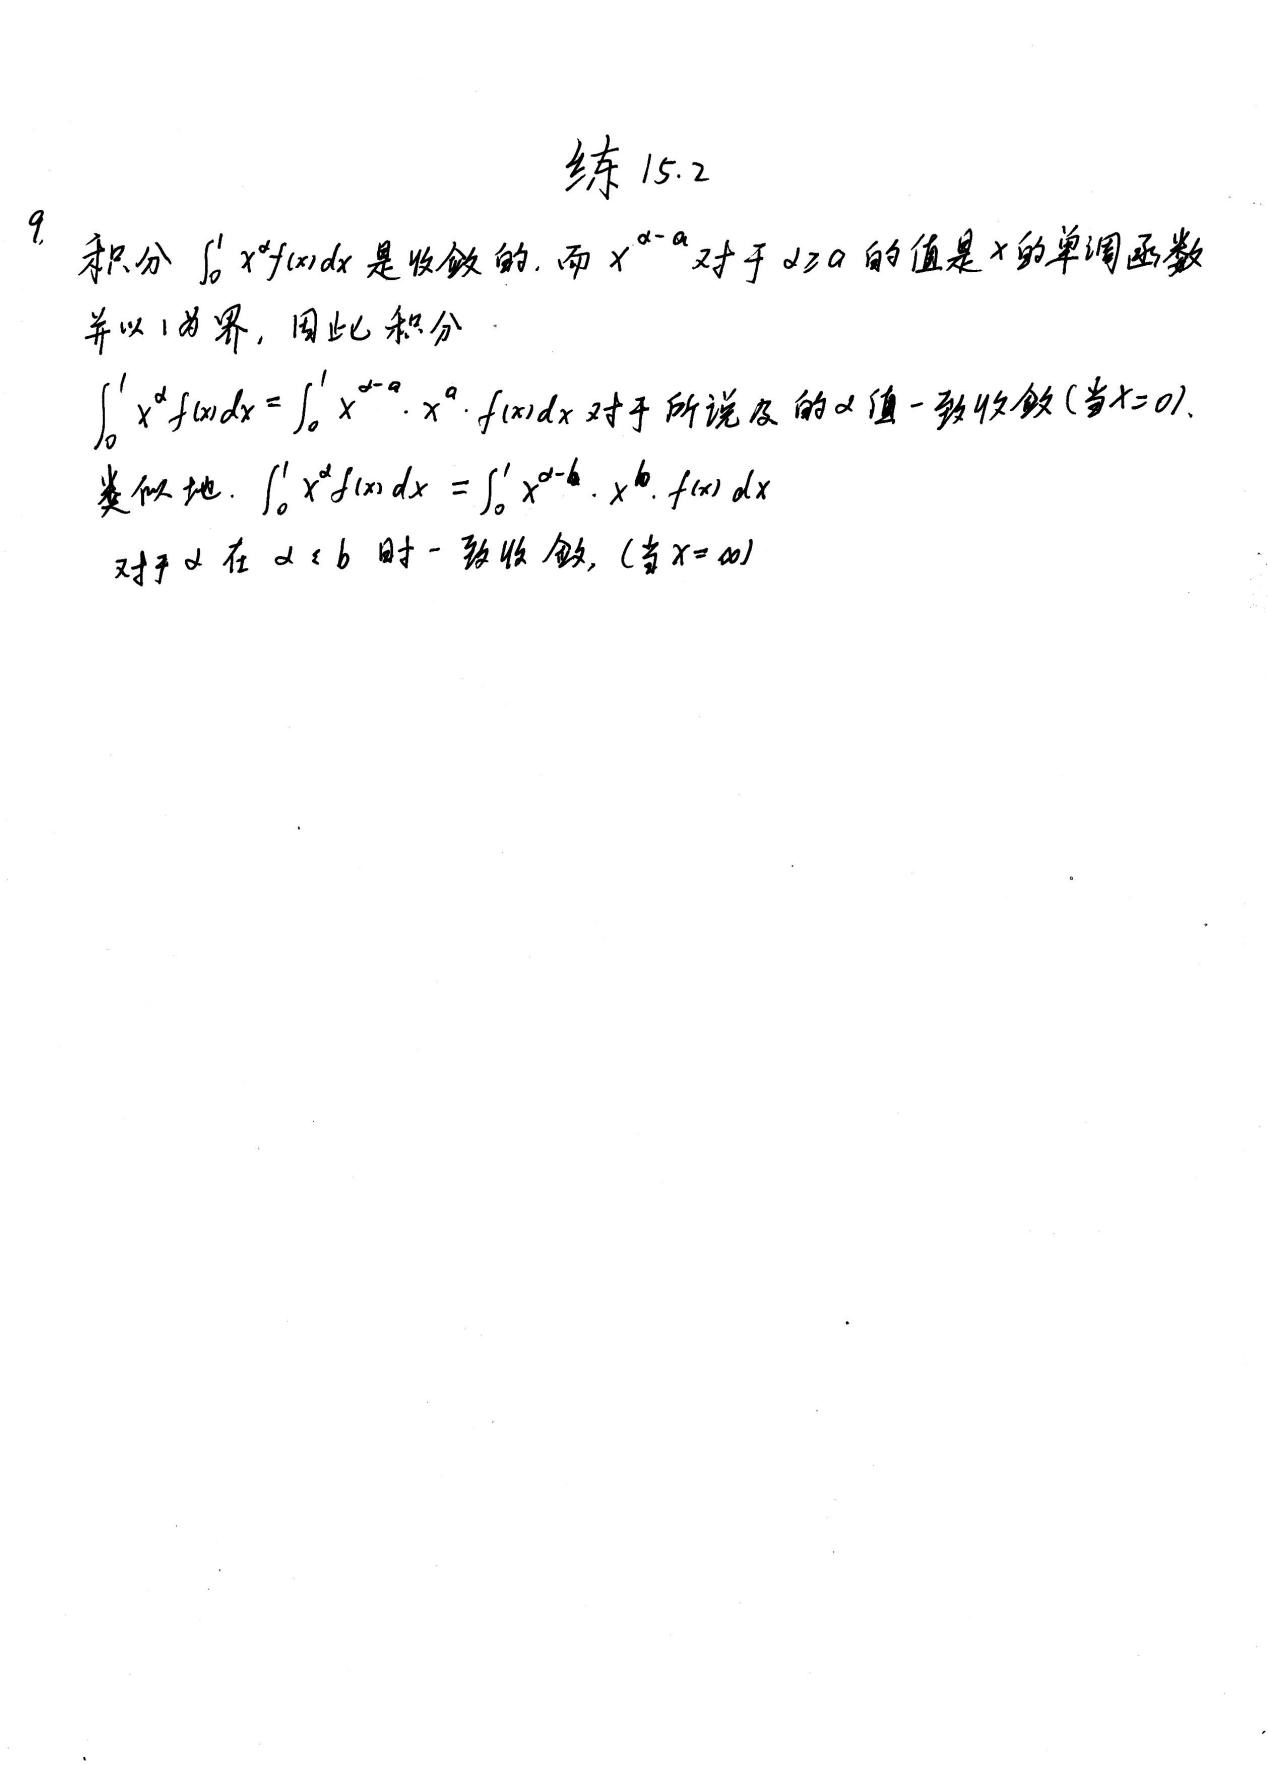 练 15.2
9.
积分 ∫₀¹ x^α f(x)dx 是收敛的. 而 x^(α-a) 对于 α≥a 的值是 x 的单调函数
并以 1 为界, 因此积分
∫₀¹ x^α f(x)dx = ∫₀¹ x^(α-a) · x^a · f(x)dx 对于所说及的 α 值一致收敛(当x=0).
类似地. ∫₀¹ x^α f(x)dx = ∫₀¹ x^(α-b) · x^b · f(x)dx
对于 α 在 α ≤ b 时一致收敛, (当 x=∞)